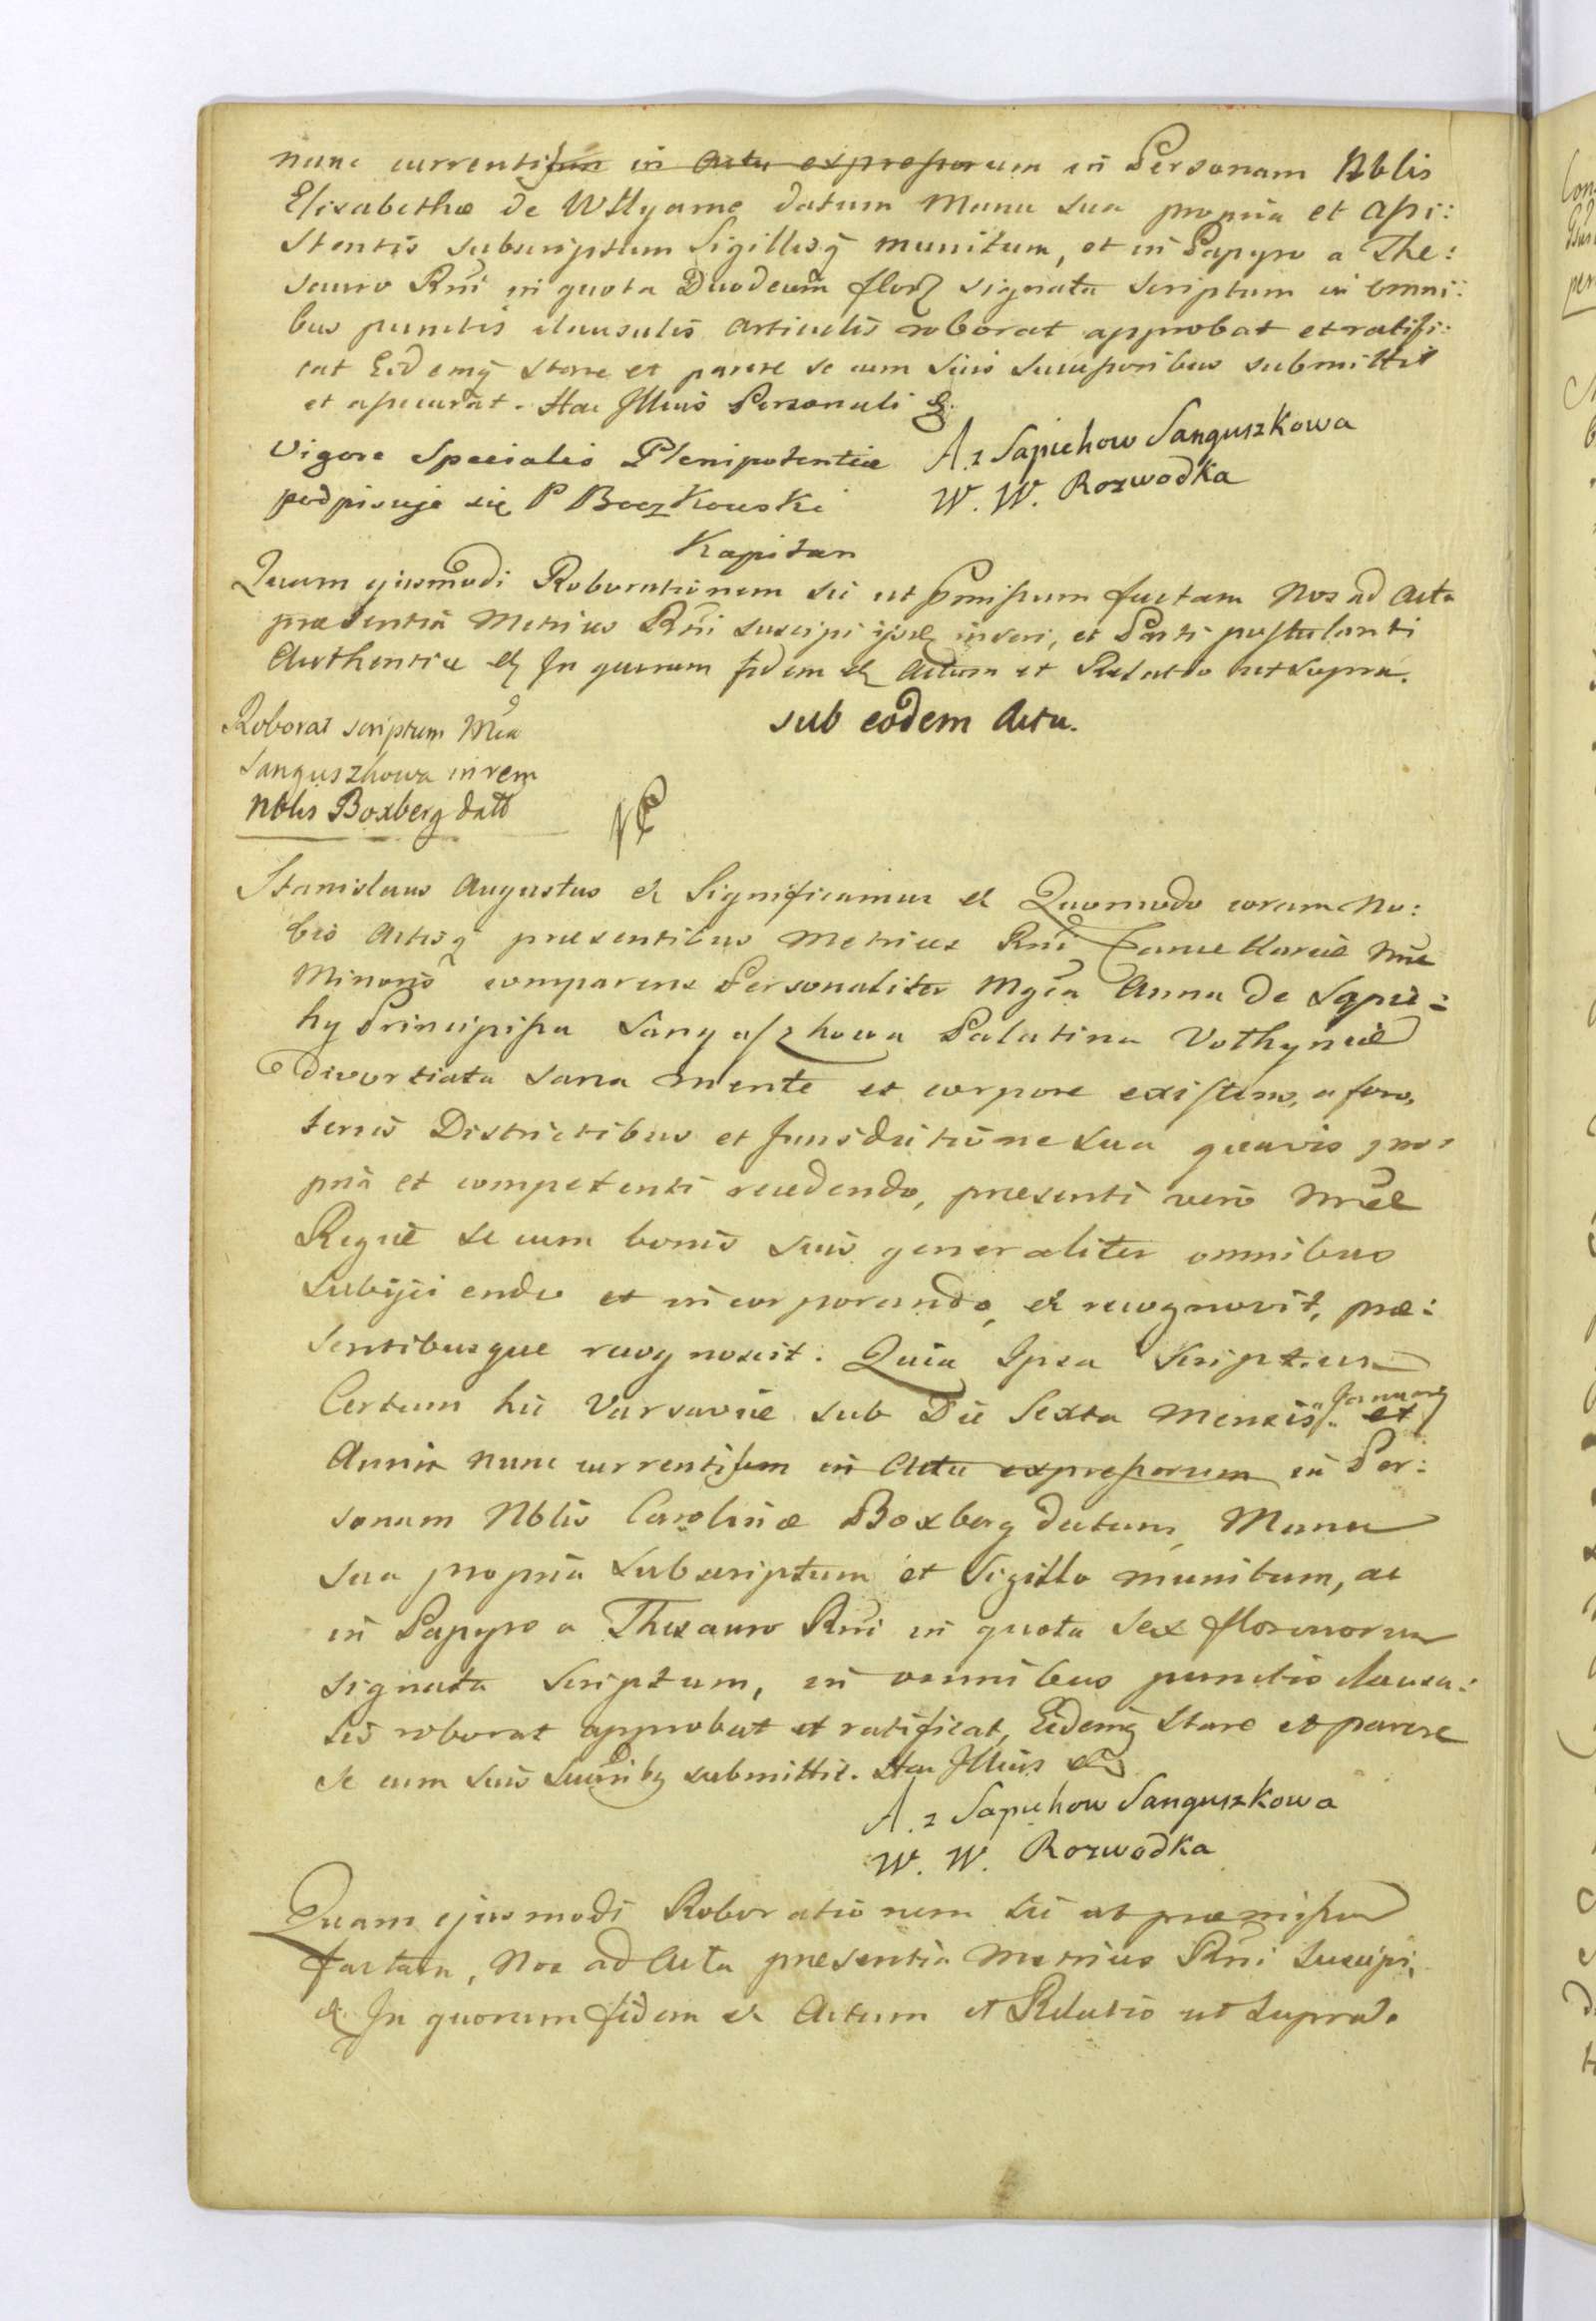 nunc currenti~~sum in Actu expressor~~um in Personam Nblis
Elisabethæ de Wttyame datum Manu sua propria et assi:
stentis subscriptum Sigillisq munitum, et in Papyro a The:
sauro Rni in quota Duodecim flor signata scriptum in omni:
bus punctis clausulis articulis roborat approbat et ratifi:
cat Eidemq stare et parere se cum suis successoribus submittit
et assecurat. Hac Illius Personali &.
Vigore Specialis Plenipotentiæ
podpisuje się P Boczkowski
Kapitan
A. z Sapiehow Sanguszkowa
W. W. Rozwodka
Quam ejusmodi Roborationem sic ut pmissum factam Nos ad Acta
præsentia Metrices Rni suscipi ijsq inseri, et Parti postulanti
Authentice & In quorum fidem & Actum et Relatio ut supra.
sub eodem Actu.
Roborat scriptum Mca
Sanguszkowa in rem
Nblis Boxberg datt
Stanislaus Augustus & Significamus & Quomodo coram No:
bis Actisq præsentibus Metrices Rni Cancellariæ Nræ
Minoris comparens Personaliter Mgca Anna de Sapie:
hy Principissa Sangussz kowa Palatina Volhyniæ
divortiata sana mente et corpore existens, a foro,
terris Districtibus et Jurisdictione sua quavis pro:
pria et competenti recedendo, præsenti vero Nræ
Regiæ se cum bonis suis generaliter omnibus
subijci endo et incorporando, & recognovit, præ:
sentibusque recognoscit. Quia Ipsa scriptum
Certum hic Varsaviæ sub Die Sexta Mensis January et
Anni nunc currenti~~sum in Actu expressorum~~ in Per:
sonam Nblis Carolinæ Boxberg datum, Manu
sua propria subscriptum et Sigillo munitum, ac
in Papyro a Thesauro Rni in quota sex florenorum
signata scriptum, in omnibus punctis clausu:
lis roborat approbat et ratificat, Eidemq stare et parere
se cum suis succribq submittit. Hac Illius &
A. z Sapiehow Sanguszkowa
W. W. Rozwodka
Quam ejusmodi Roborationem sic ut præmissum
factam, Nos ad Acta præsentia Metrices Rni suscipi,
& In quorum fidem & Actum et Relatio ut supra.